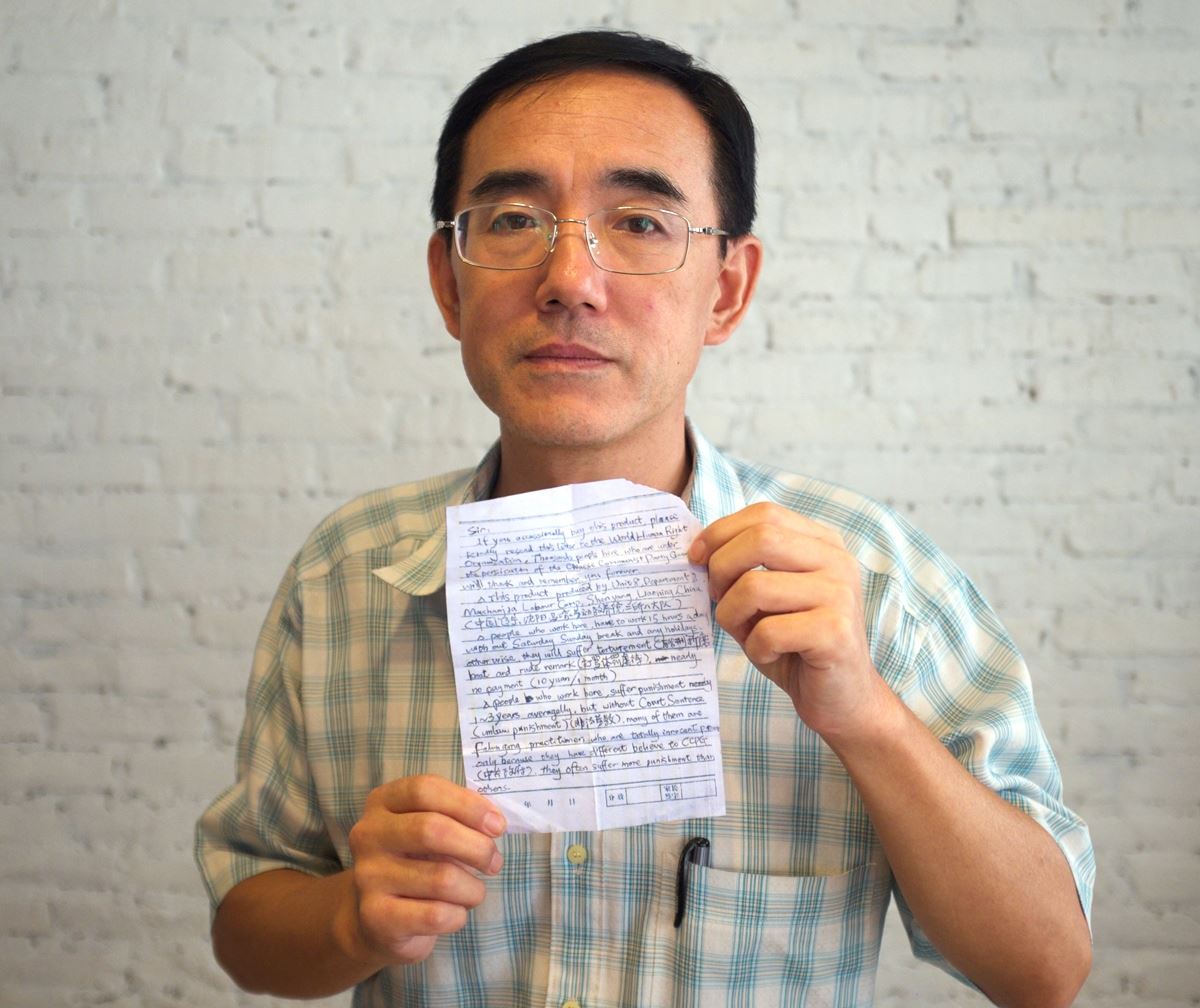 Sir:
If you occassionally buy this product, please
kindly resend this leter to the World Human Right
Organization. Thousands people here, who are under
the persicution of the Chinese Communist Party Gover
will thank and remember you forever.
△ This product produced by Unit 8, Department 2,
Masanjia Labour Camp, Shenyang, Liaoning, China
(中国, 辽宁, 沈阳, 马三家
△ people who work here, have to work 15 hours a day
with out Saturday, Sunday break and any holidays,
other wise, they will suffer torturement (
beat and rude remark (打骂体罚虐待), nealy
no payment (10 yuan / 1 month)
△ people who work here, suffer punishment nearly
1~3 years averagelly, but without Court Sentence
(unlaw punishment) (非法劳教). many of them are
Falungong practitioner, who are totally innocent people
only because they have different believe to CCPG
they often suffer more punishment than
others.
年 月 日